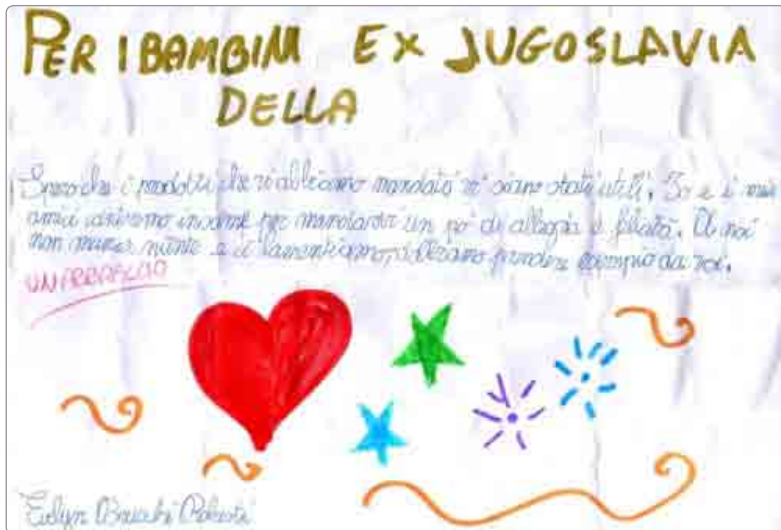 PER I BAMBINI EX JUGOSLAVIA
DELLA
Spero che i prodotti che vi abbiamo mandato vi siano stati utili. Io e i miei
amici insieme per mandarvi un po' di allegria e felicità. A noi
non manca niente e ci lamentiamo, dobbiamo prendere esempio da voi.
UN ABBRACCIO
Evelyn